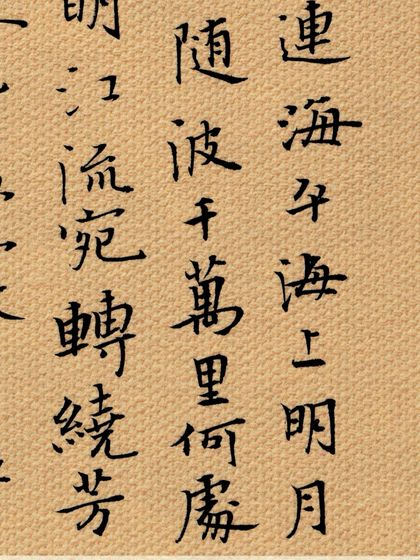 連海平海上明月
随波千萬里何處
明江流宛轉繞芳